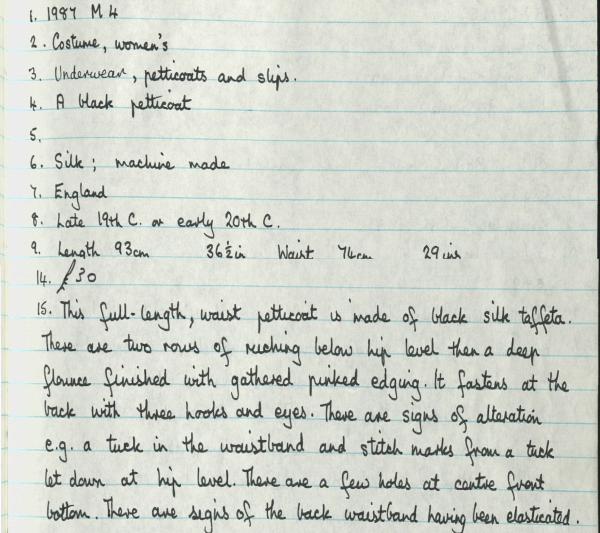 1. 1987 M 4
2. Costume, women's
3. Underwear, petticoats and slips.
4. A black petticoat
5.
6. Silk; machine made
7. England
8. Late 19th C. or early 20th C.
9. Length 93cm 36½in Waist 74cm 29 ins
14. £30
15. This full-length, waist petticoat is made of black silk taffeta.
There are two rows of ruching below hip level then a deep
flounce finished with gathered pinked edging. It fastens at the
back with three hooks and eyes. There are signs of alteration
e.g. a tuck in the waistband and stitch marks from a tuck
let down at hip level. There are a few holes at centre front
bottom. There are signs of the back waistband having been elasticated.